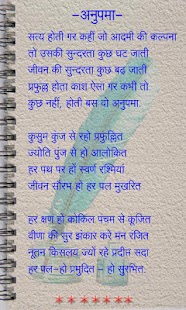 –अनुपमा–
सत्य होती गर कहीं जो आदमी की कल्पना
तो उसकी सुन्दरता कुछ घट जाती
जीवन की सुन्दरता कुछ बढ़ जाती
प्रफुल्ल होता काश ऐसा गर कभी तो
कुछ नहीं, होती बस वो अनुपमा.
कुसुम कुंज से रहो प्रफुल्लित
ज्योति पुंज से हो आलोकित
हर पथ पर हों स्वर्ण रश्मियां
जीवन सौरभ हो हर पल मुखरित
हर क्षण हो कोकिल पंचम से कूजित
वीणा की सुर झंकार करे मन रंजित
नूतन किसलय ज्यों रहे प्रदीप्त सदा
हर पल–हो प्रमुदित – हो सुरभित.